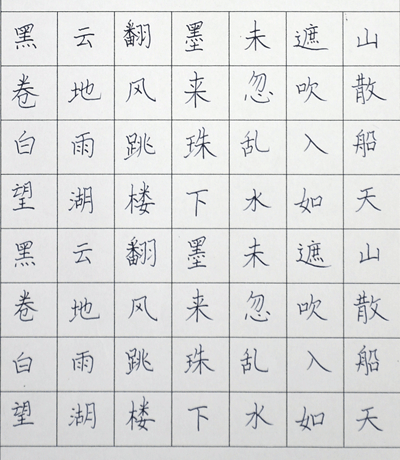 黑云翻墨未遮山
卷地风来忽吹散
白雨跳珠乱入船
望湖楼下水如天
黑云翻墨未遮山
卷地风来忽吹散
白雨跳珠乱入船
望湖楼下水如天